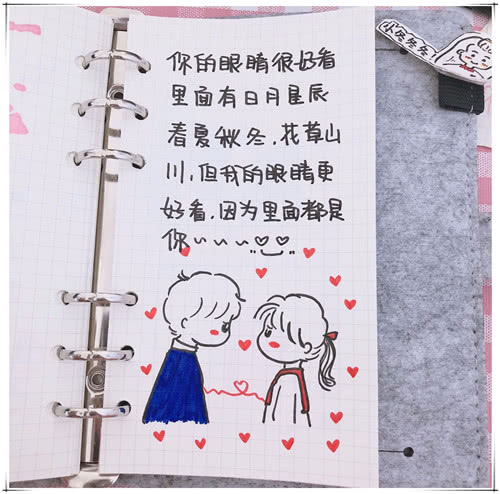 你的眼睛很好看
里面有日月星辰
春夏秋冬,花草山
川,但我的眼睛更
好看,因为里面都是
你~~~